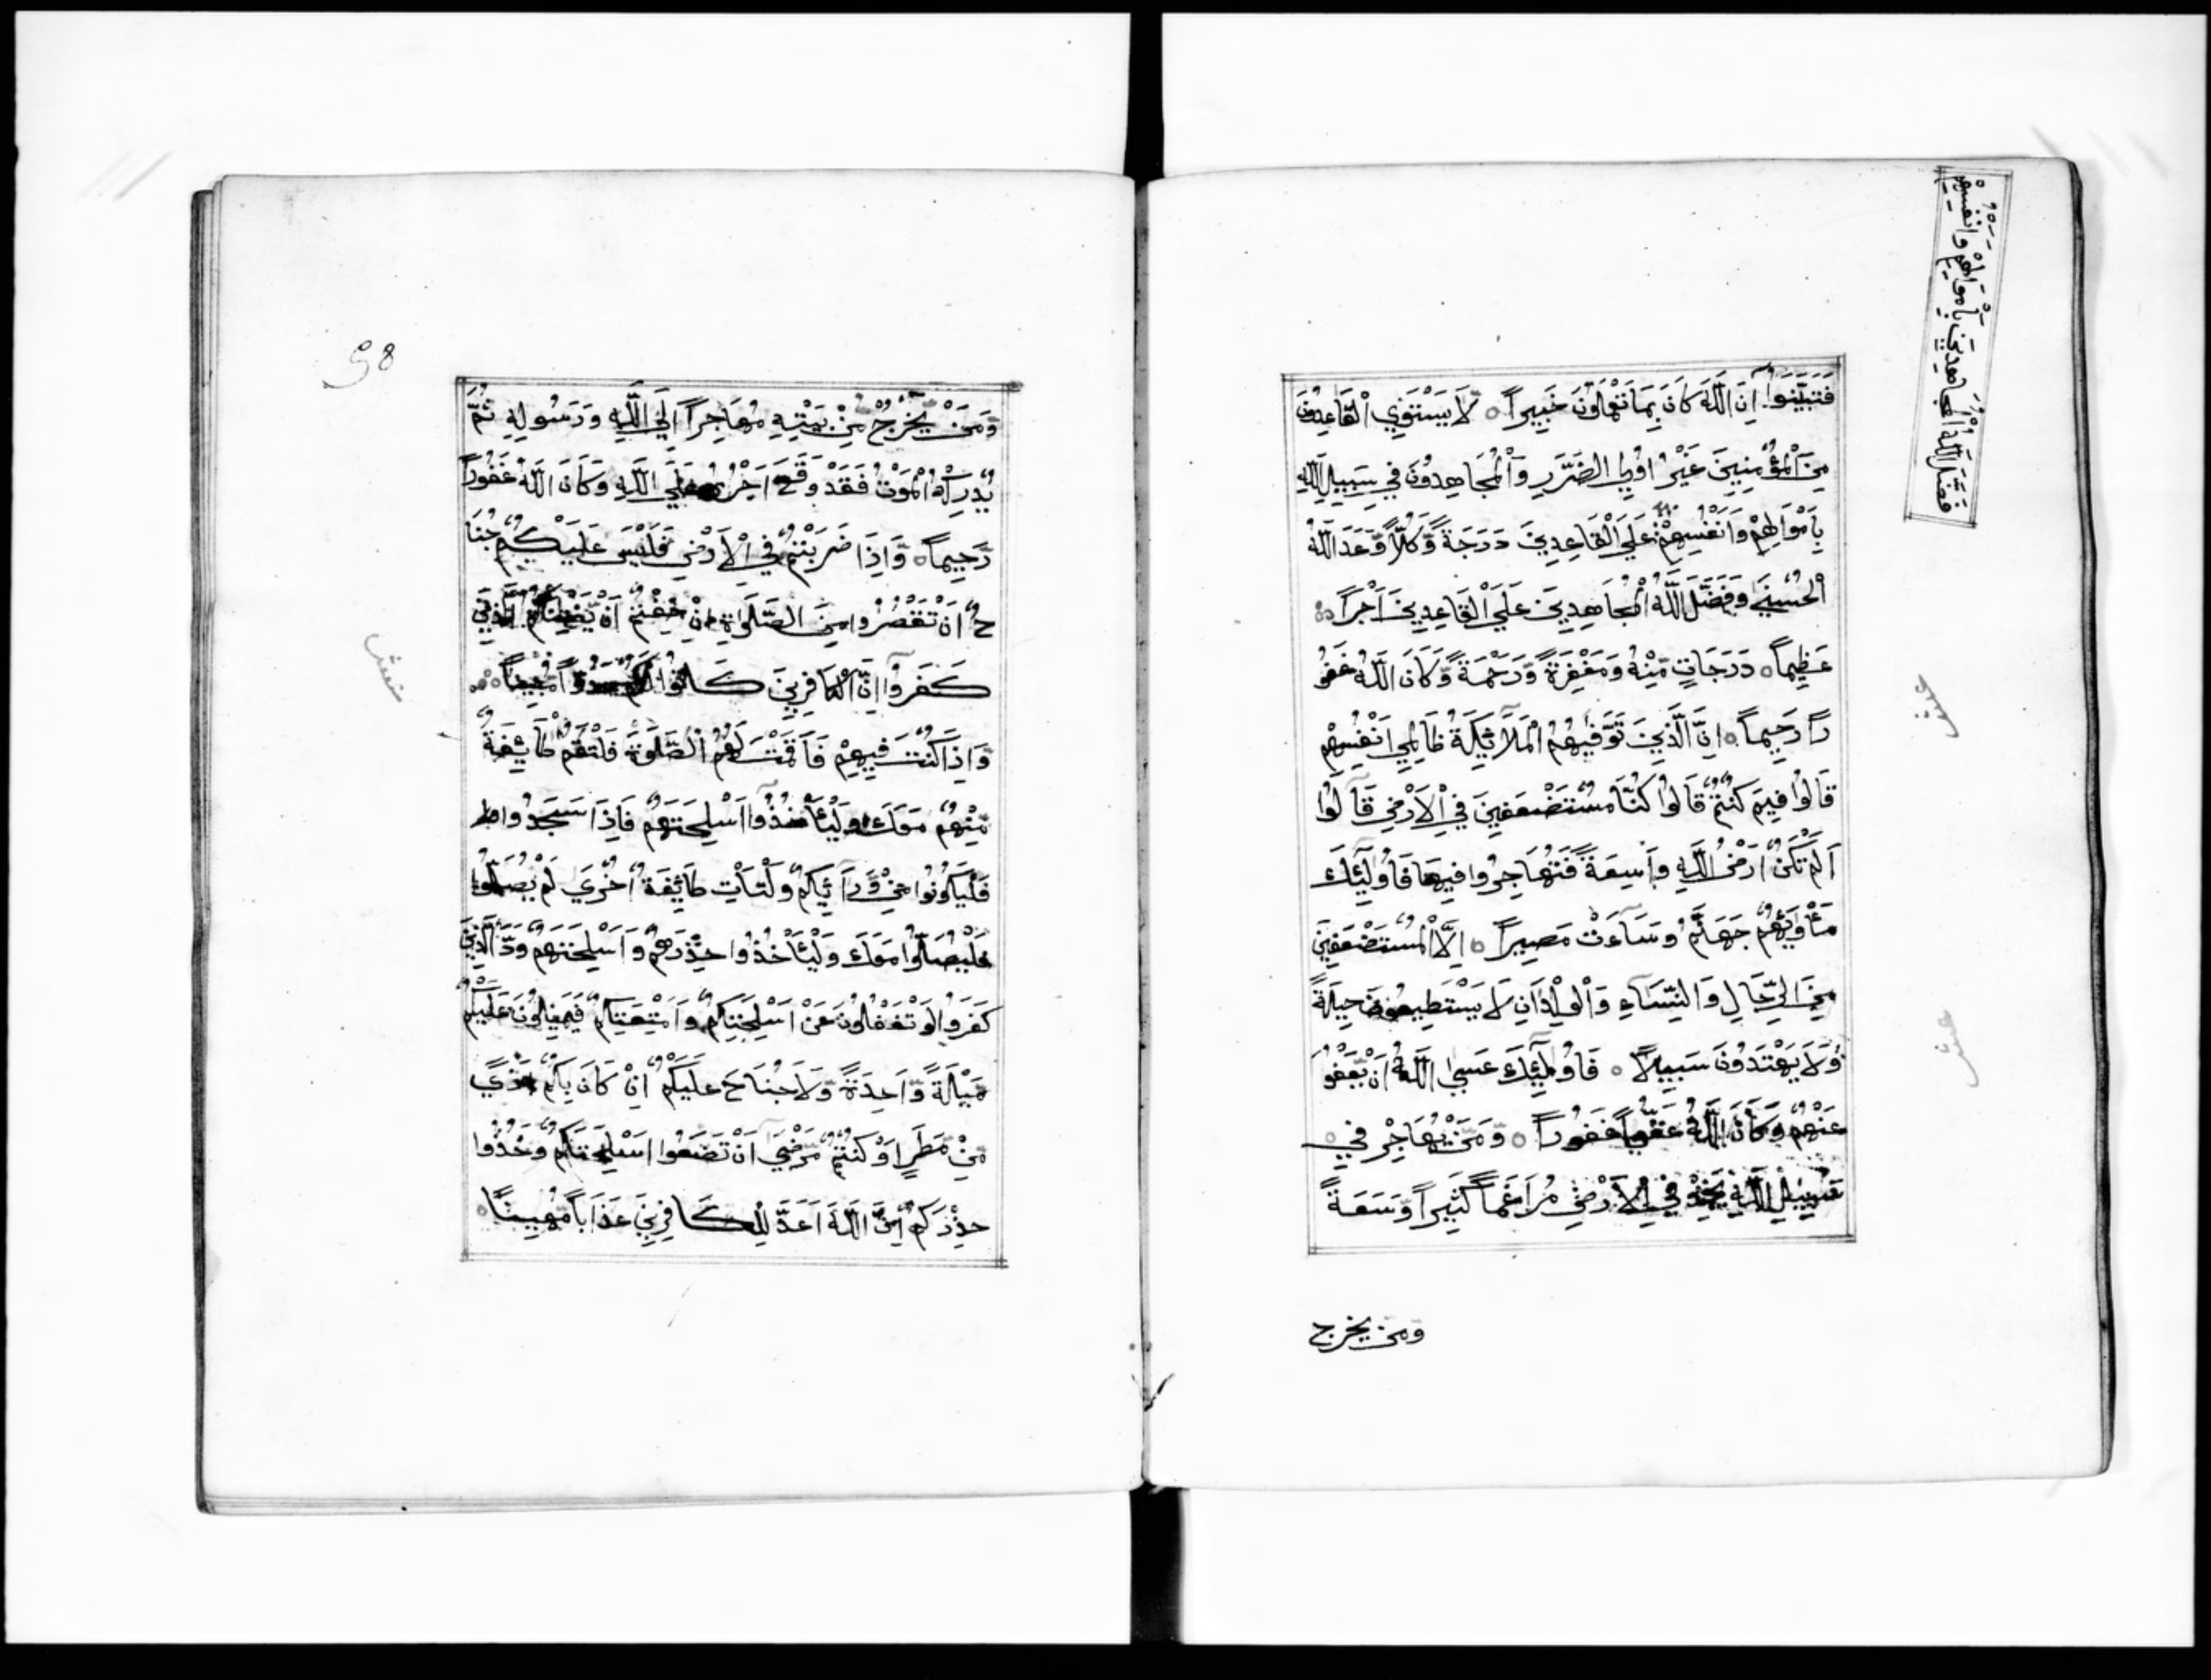 فَضَّلَ اللّٰهُ الْمُجَاهِدِينَ بِأَمْوَالِهِمْ وَأَنْفُسِهِمْ
فَتَبَيَّنُوا اِنَّ اللّٰهَ كَانَ بِمَا تَعْمَلُونَ خَبِيراً ۝ لَا يَسْتَوِي الْقَاعِدُونَ
مِنَ الْمُؤْمِنِينَ غَيْرُ اُولِي الضَّرَرِ وَالْمُجَاهِدُونَ فِي سَبِيلِ اللّٰهِ
بِاَمْوَالِهِمْ وَاَنْفُسِهِمْ عَلَي الْقَاعِدِينَ دَرَجَةً وَّكُلّاً وَّعَدَ اللّٰهُ
الْحُسْنَي وَفَضَّلَ اللّٰهُ الْمُجَاهِدِينَ عَلَي الْقَاعِدِينَ اَجْراً
عَظِيماً ۝ دَرَجَاتٍ مِّنْهُ وَمَغْفِرَةً وَّرَحْمَةً وَّكَانَ اللّٰهُ غَفُو
راً رَّحِيماً ۝ اِنَّ الَّذِينَ تَوَفّٰيهُمُ الْمَلَآئِكَةُ ظَالِمِي اَنْفُسِهِمْ
قَالُوا فِيمَ كُنْتُمْ قَالُوا كُنَّا مُسْتَضْعَفِينَ فِي الْاَرْضِ قَالُوا
اَلَمْ تَكُنْ اَرْضُ اللّٰهِ وَاسِعَةً فَتُهَاجِرُوا فِيهَا فَاُولٰٓئِكَ
مَأْوٰيهُمْ جَهَنَّمُ وَسَآءَتْ مَصِيراً ۝ اِلَّا الْمُسْتَضْعَفِينَ
مِنَ الرِّجَالِ وَالنِّسَاءِ وَالْوِلْدَانِ لَا يَسْتَطِيعُونَ حِيلَةً
وَّلَا يَهْتَدُونَ سَبِيلاً ۝ فَاُولٰٓئِكَ عَسَي اللّٰهُ اَنْ يَّعْفُوَ
عَنْهُمْ وَكَانَ اللّٰهُ عَفُوّاً غَفُوراً ۝ وَّمَنْ يُّهَاجِرْ فِي
سَبِيلِ اللّٰهِ يَجِدْ فِي الْاَرْضِ مُرَاغَماً كَثِيراً وَّسَعَةً
ومن يخرج
عشر
عشر
98
وَّمَنْ يَّخْرُجْ مِنْ بَيْتِهِ مُهَاجِراً اِلَي اللّٰهِ وَرَسُولِهِ ثُمَّ
يُدْرِكْهُ الْمَوْتُ فَقَدْ وَقَعَ اَجْرُهُ عَلَي اللّٰهِ وَكَانَ اللّٰهُ غَفُوراً
رَّحِيماً ۝ وَّاِذَا ضَرَبْتُمْ فِي الْاَرْضِ فَلَيْسَ عَلَيْكُمْ جُنَا
حٌ اَنْ تَقْصُرُوا مِنَ الصَّلٰوةِ اِنْ خِفْتُمْ اَنْ يَّفْتِنَكُمُ الَّذِينَ
كَفَرُوا اِنَّ الْكَافِرِينَ كَانُوا لَكُمْ عَدُوّاً مُّبِيناً ۝
وَّاِذَا كُنْتَ فِيهِمْ فَاَقَمْتَ لَهُمُ الصَّلٰوةَ فَلْتَقُمْ طَآئِفَةٌ
مِّنْهُمْ مَعَكَ وَلْيَأْخُذُوا اَسْلِحَتَهُمْ فَاِذَا سَجَدُوا
فَلْيَكُونُوا مِنْ وَّرَآئِكُمْ وَلْتَأْتِ طَآئِفَةٌ اُخْرَي لَمْ يُصَلُّوا
فَلْيُصَلُّوا مَعَكَ وَلْيَأْخُذُوا حِذْرَهُمْ وَاَسْلِحَتَهُمْ وَدَّ الَّذِينَ
كَفَرُوا لَوْ تَغْفُلُونَ عَنْ اَسْلِحَتِكُمْ وَاَمْتِعَتِكُمْ فَيَمِيلُونَ عَلَيْكُمْ
مَّيْلَةً وَّاحِدَةً وَّلَا جُنَاحَ عَلَيْكُمْ اِنْ كَانَ بِكُمْ اَذًي
مِّنْ مَّطَرٍ اَوْ كُنْتُمْ مَّرْضَي اَنْ تَضَعُوا اَسْلِحَتَكُمْ وَخُذُوا
حِذْرَكُمْ اِنَّ اللّٰهَ اَعَدَّ لِلْكَافِرِينَ عَذَاباً مُّهِيناً ۝